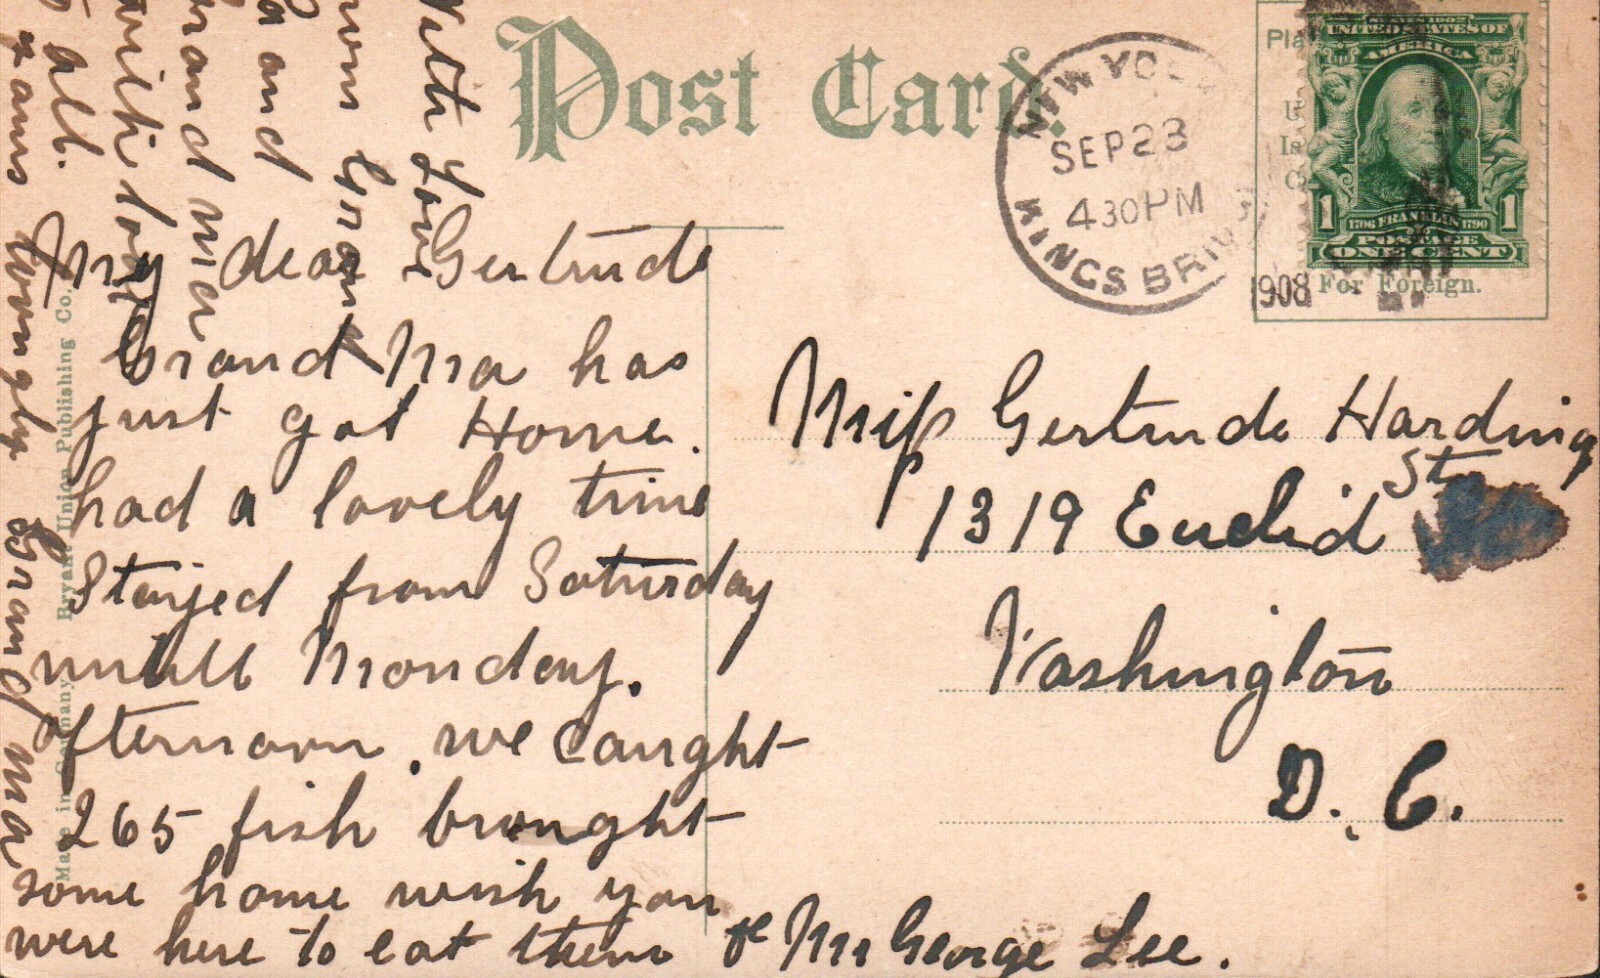 Post Card.
NEW YORK
SEP 23
430 PM
KINGS BRI
1908
SERIES 1902
UNITED STATES OF
AMERICA
1 1706 FRANKLIN 1790 1
POSTAGE
ONE CENT
For Foreign.
My dear Gertrude
Grand Ma has
just got Home.
had a lovely time
Stayed from Saturday
untill Monday.
afternoon. we caught
265 fish brought
some home wish you
were here to eat them
Miss Gertrude Harding
1319 Euclid St
Washington
D. C.
℅ Mr George Lee.
With Love
from Grand
Ma and
Grand
with love
to all.
yours lovingly Grand Ma
Made in Germany Bryant Union Publishing Co.